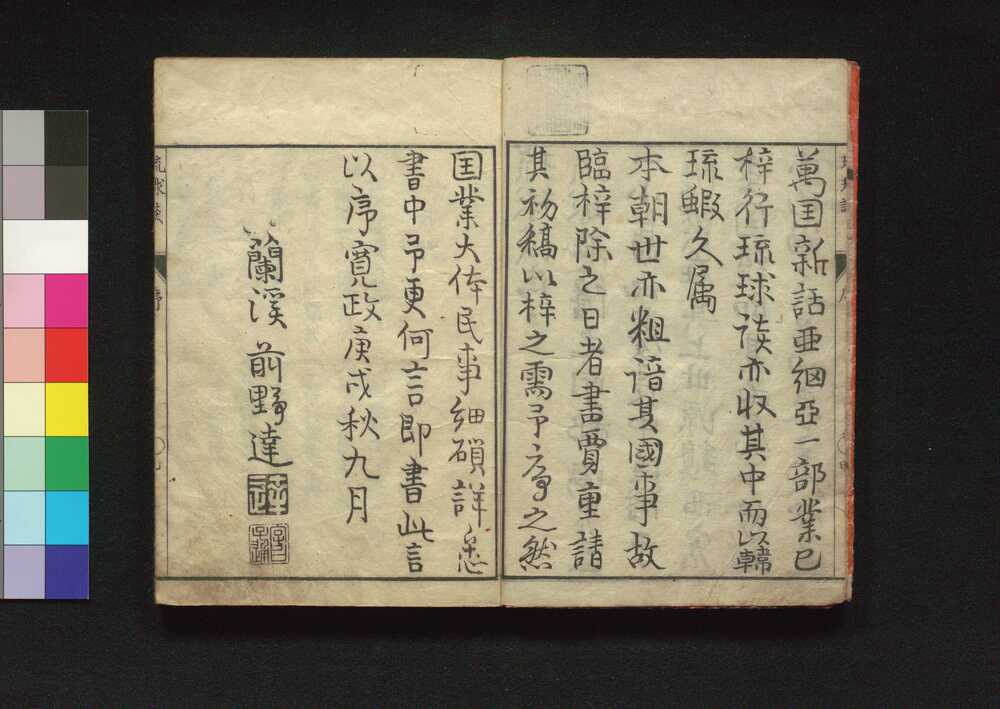 萬囯新話亜細亞一部業已
梓行琉球談亦収其中而以韓
琉蝦久属
本朝世亦粗諳其國事故
臨梓除之日者書賈重請
其初稿以梓之需予序之然
囯業大体民事細碩詳悉
書中予更何言即書此言
以序寛政庚戌秋九月
蘭溪前野達
琉球談
序